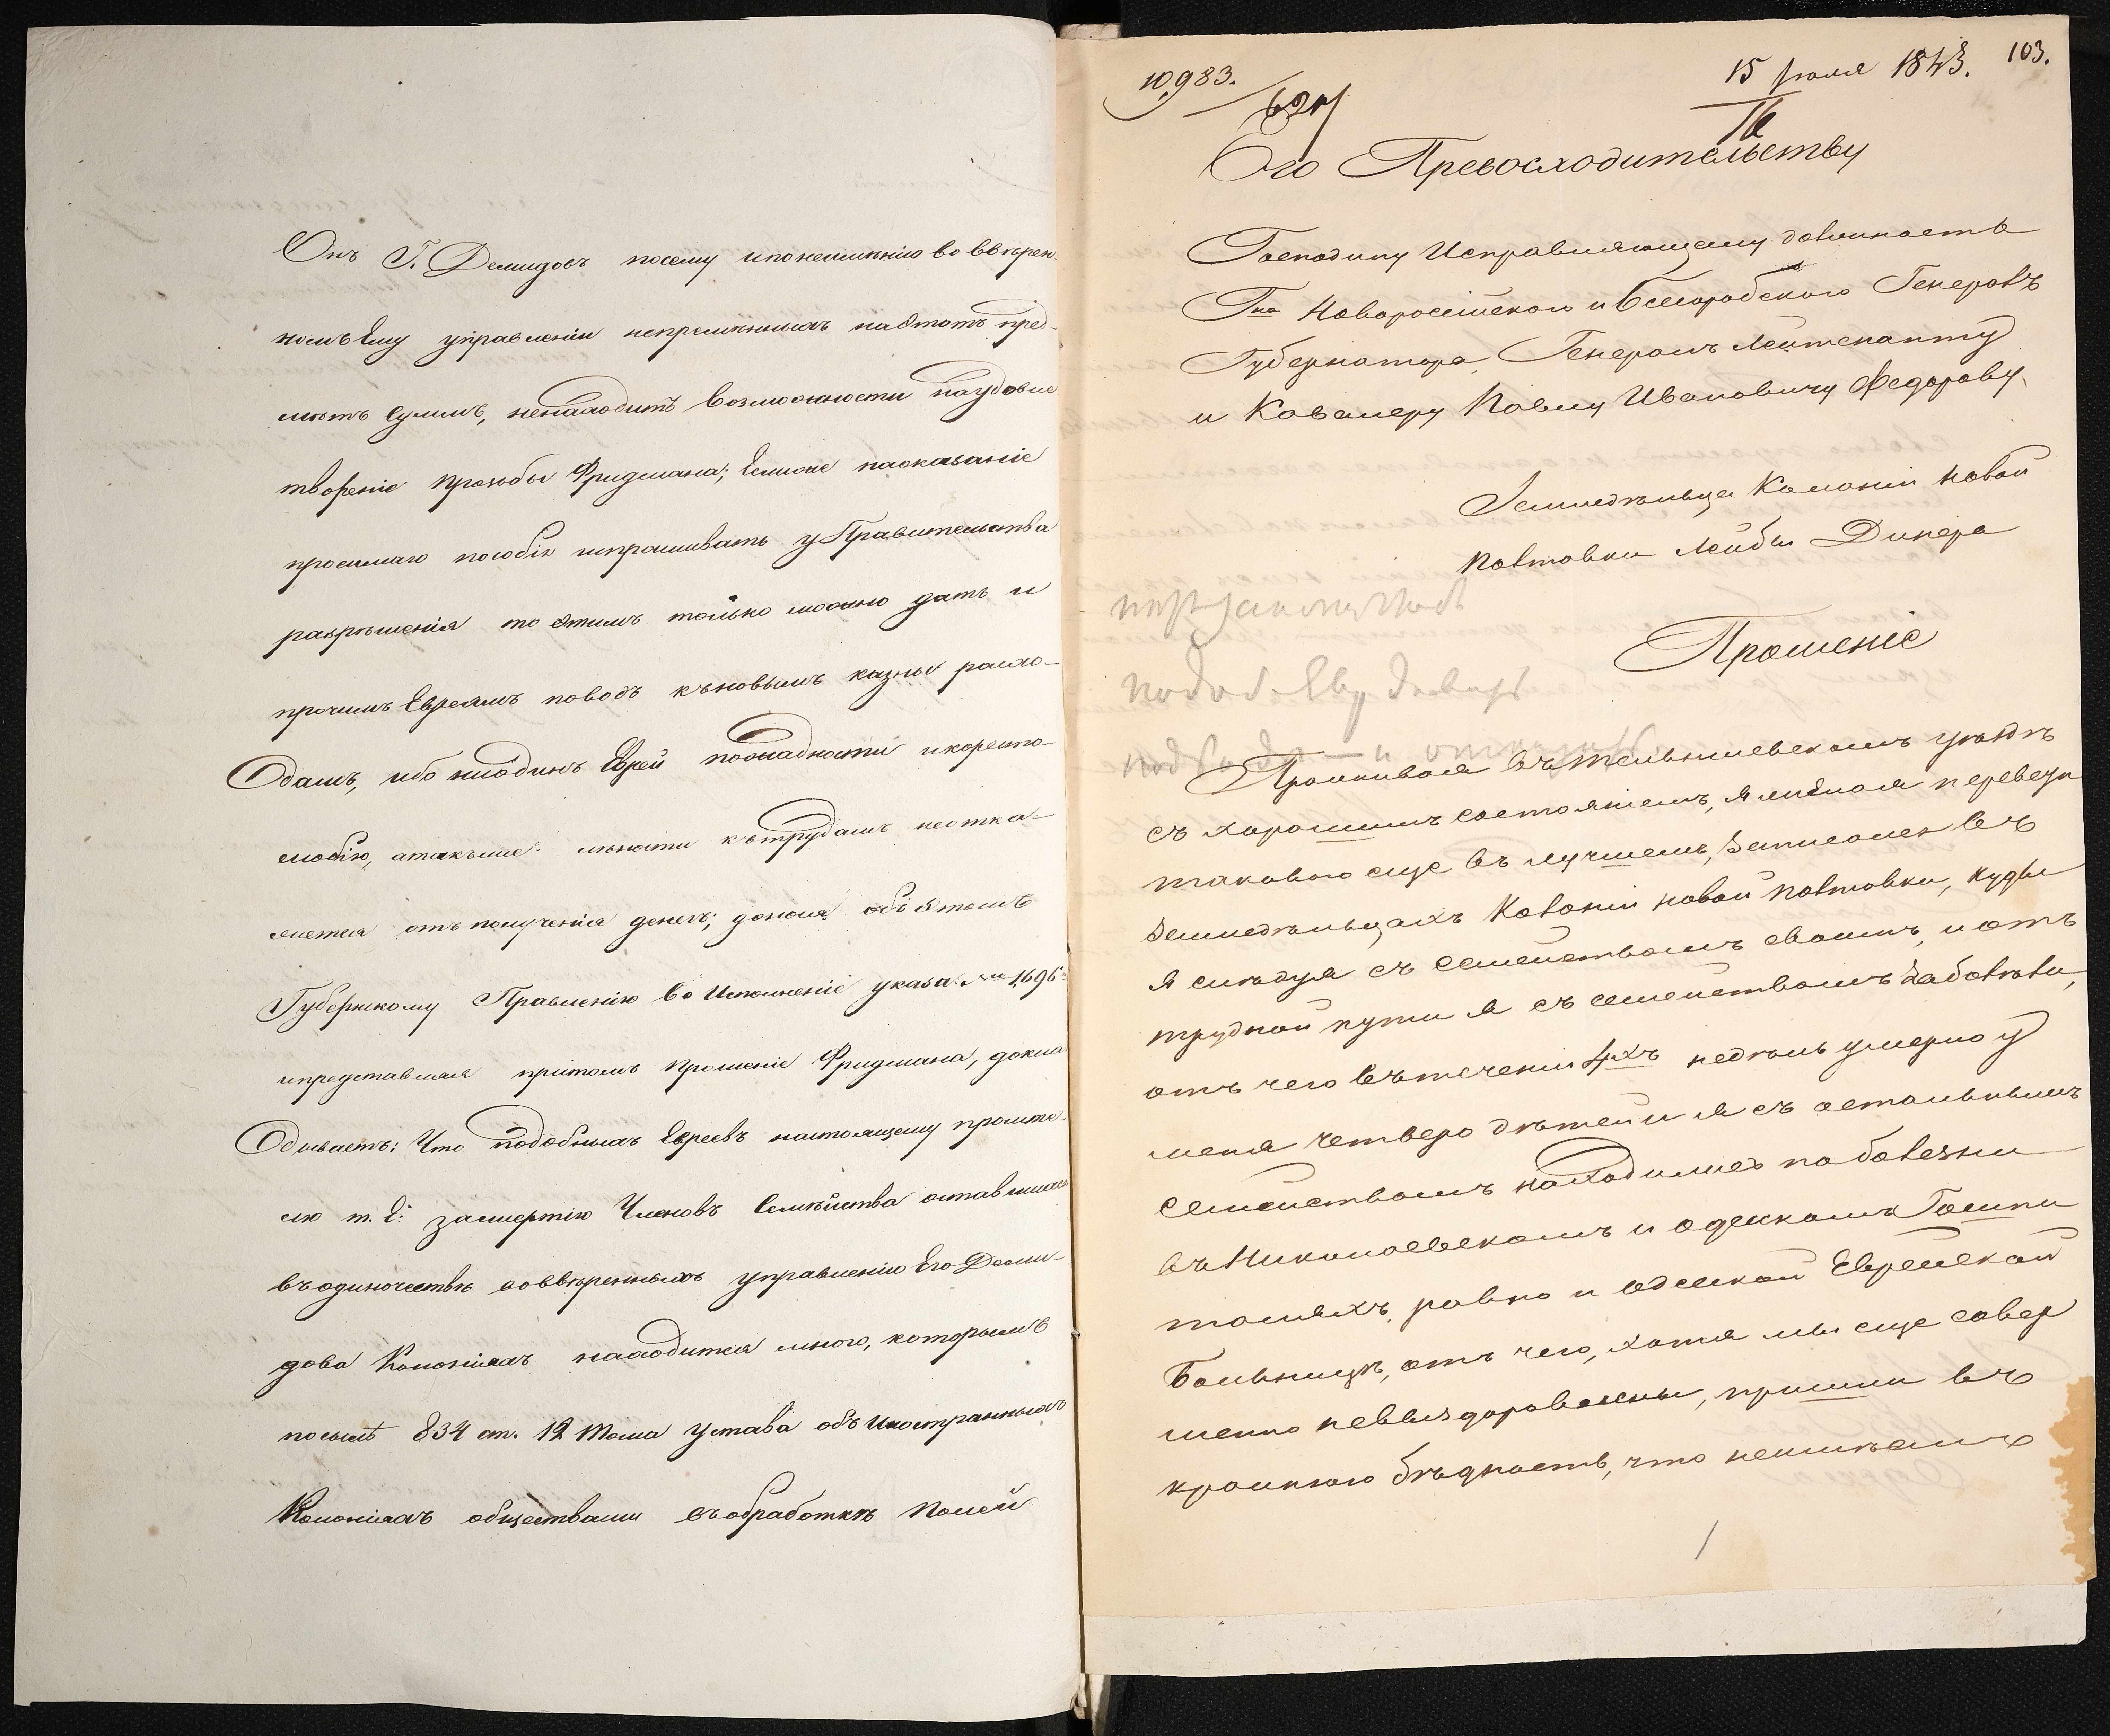 Онъ Г. Демидовъ посему и по неимѣнію во ввѣрен-
номъ Ему управленіи непремѣнныхъ на этотъ пред-
мѣтъ суммъ, ненаходитъ возможности на удовле
твореніе прозьбы Фридмана; Ежели же на оказаніе
просимаго пособія испрашивать у Правительства
разрѣшенія то этимъ только можно дать и
прочимъ Евреямъ поводъ къ новымъ казны расхо-
дамъ, ибо ни одинъ Еврей по жадности и корысто-
любію, а также лѣности къ трудамъ не отка-
жется отъ полученія денегъ; донося объ этомъ
Губернскому Правленію во Исполненіе указа № 1,696
и представляя притомъ прошеніе Фридмана, докла
дываетъ: Что подобныхъ Евреевъ настоящему просите-
лю т. е: за смертію Членовъ Семѣйства оставшихся
въ одиночествѣ во ввѣренныхъ управленію Его Деми-
дова Колоніяхъ находится много, которымъ
по силѣ 834 ст. 12 Тома Устава объ Иностранныхъ
Колоніяхъ обществами въ обработкѣ полей
10,983.
15 Іюля 1843. 103.
Его Превосходительству
Господину Исправляющему должность
Гна Новоросійского и Бессарабского Генералъ
Губернатора, Генералъ Лейтенанту
и Кавалеру Павлу Ивановичу Федорову
Земледѣльца Колоніи Новой
Полтавки Лейбы Динера
Прошеніе
Проживая въ Тельшевскомъ уѣздѣ
съ хорошимъ состояніемъ, я желая перевезти
таковаго еще въ лучшемъ, записался въ
земледѣльцахъ Колоніи новой Полтавки, куды
я слѣдуя съ семействомъ своимъ, и отъ
трудной пути я съ семействомъ заболѣли,
отъ чего въ теченіи 4хъ недѣль умерло у
меня четверо дѣтей и я съ остальнымъ
семействомъ находились по болезни
въ Николаевскомъ и одесскомъ Гошпи
таляхъ, равно и одесской Еврейской
Больницѣ, отъ чего, хотя мы еще совер
шенно невыздоровлены, пришли въ
крайнюю бѣдность, что неимѣемъ